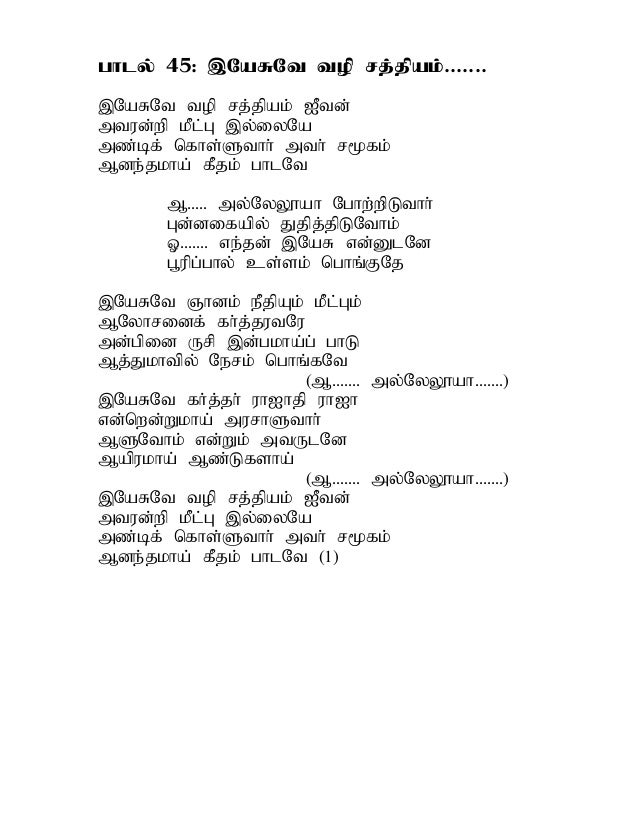 பாடல் 45: இயேசுவே வழி சத்தியம்.......
இயேசுவே வழி சத்தியம் ஜீவன்
அவரன்றி மீட்பு இல்லையே
அண்டிக் கொள்ளுவார் அவர் சமூகம்
ஆனந்தமாய் கீதம் பாடவே
ஆ..... அல்லேலூயா போற்றிடுவார்
புன்னகையில் துதித்திடுவோம்
ஓ....... எந்தன் இயேசு என்னுடனே
பூரிப்பால் உள்ளம் பொங்குதே
இயேசுவே ஞானம் நீதியும் மீட்பும்
ஆலோசனைக் கர்த்தரவரே
அன்பினை ருசி இன்பமாய்ப் பாடு
ஆத்துமாவில் நேசம் பொங்கவே
(ஆ....... அல்லேலூயா.......)
இயேசுவே கர்த்தர் ராஜாதி ராஜா
என்றென்றுமாய் அரசாளுவார்
ஆளுவோம் என்றும் அவருடனே
ஆயிரமாய் ஆண்டுகளாய்
(ஆ....... அல்லேலூயா.......)
இயேசுவே வழி சத்தியம் ஜீவன்
அவரன்றி மீட்பு இல்லையே
அண்டிக் கொள்ளுவார் அவர் சமூகம்
ஆனந்தமாய் கீதம் பாடவே (1)